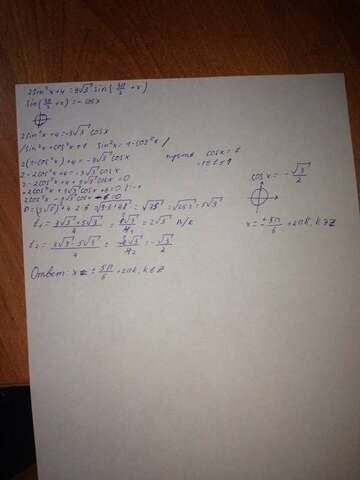 2sin²x+4=3√3 sin(3π/2+x)
sin(3π/2+x)=-cosx
2sin²x+4=-3√3 cosx
/sin²x+cos²x=1 sin²x=1-cos²x/
2(1-cos²x)+4=-3√3 cosx
пусть cosx=t
-1≤t≤1
2-2cos²x+4=-3√3 cosx
2-2cos²x+4+3√3 cosx=0
-2cos²x+3√3 cosx+6=0 |:-1
2cos²x-3√3 cosx-6=0
t₁=(3√3+5√3)/4=8√3/4=2√3 п/к
t₂=(3√3-5√3)/4=-2√3/4=-√3/2
cosx=-√3/2
x=±5π/6+2πk, k∈Z
Ответ: x=±5π/6+2πk, k∈Z